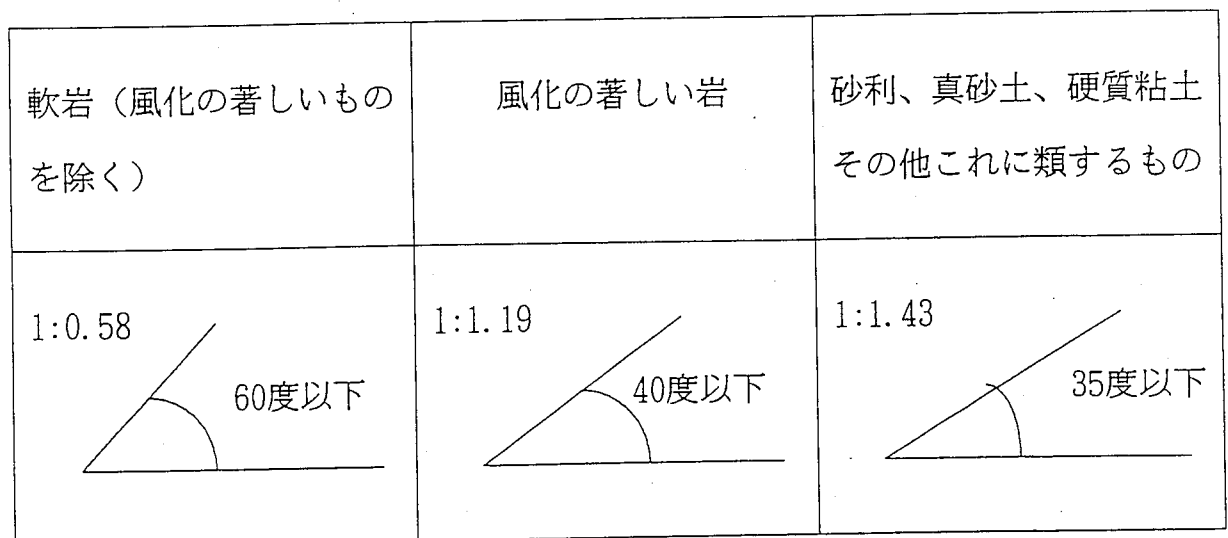 軟岩（風化の著しいもの
を除く）
風化の著しい岩
砂利、真砂土、硬質粘土
その他これに類するもの
1:0.58
60度以下
1:1.19
40度以下
1:1.43
35度以下